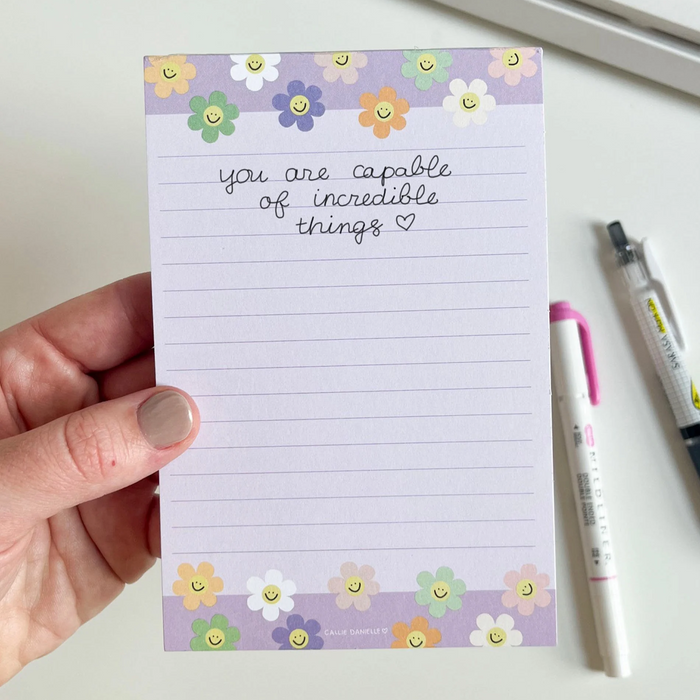 you are capable
of incredible
things ♡
CALLIE DANIELLE ♡
MILDLINER
DOUBLE ENDED
SARASA